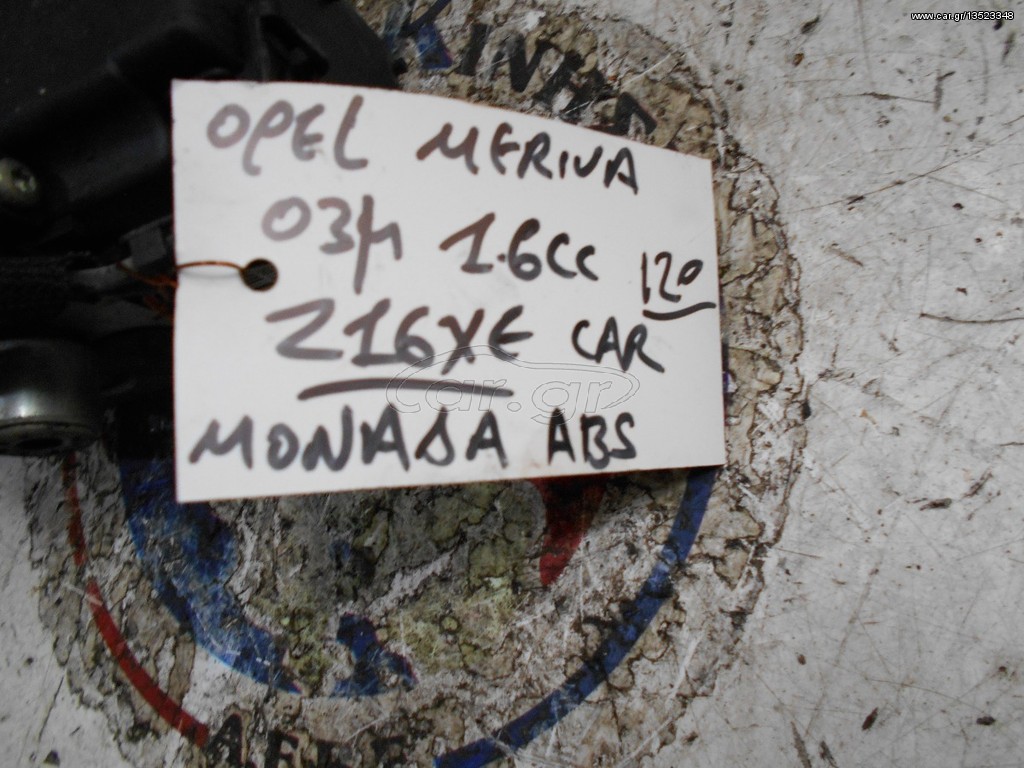 www.car.gr/13523348
OPEL MERIVA
03μ 1.6cc 120
Z16XE CAR
car.gr
ΜΟΝΑΔΑ ABS